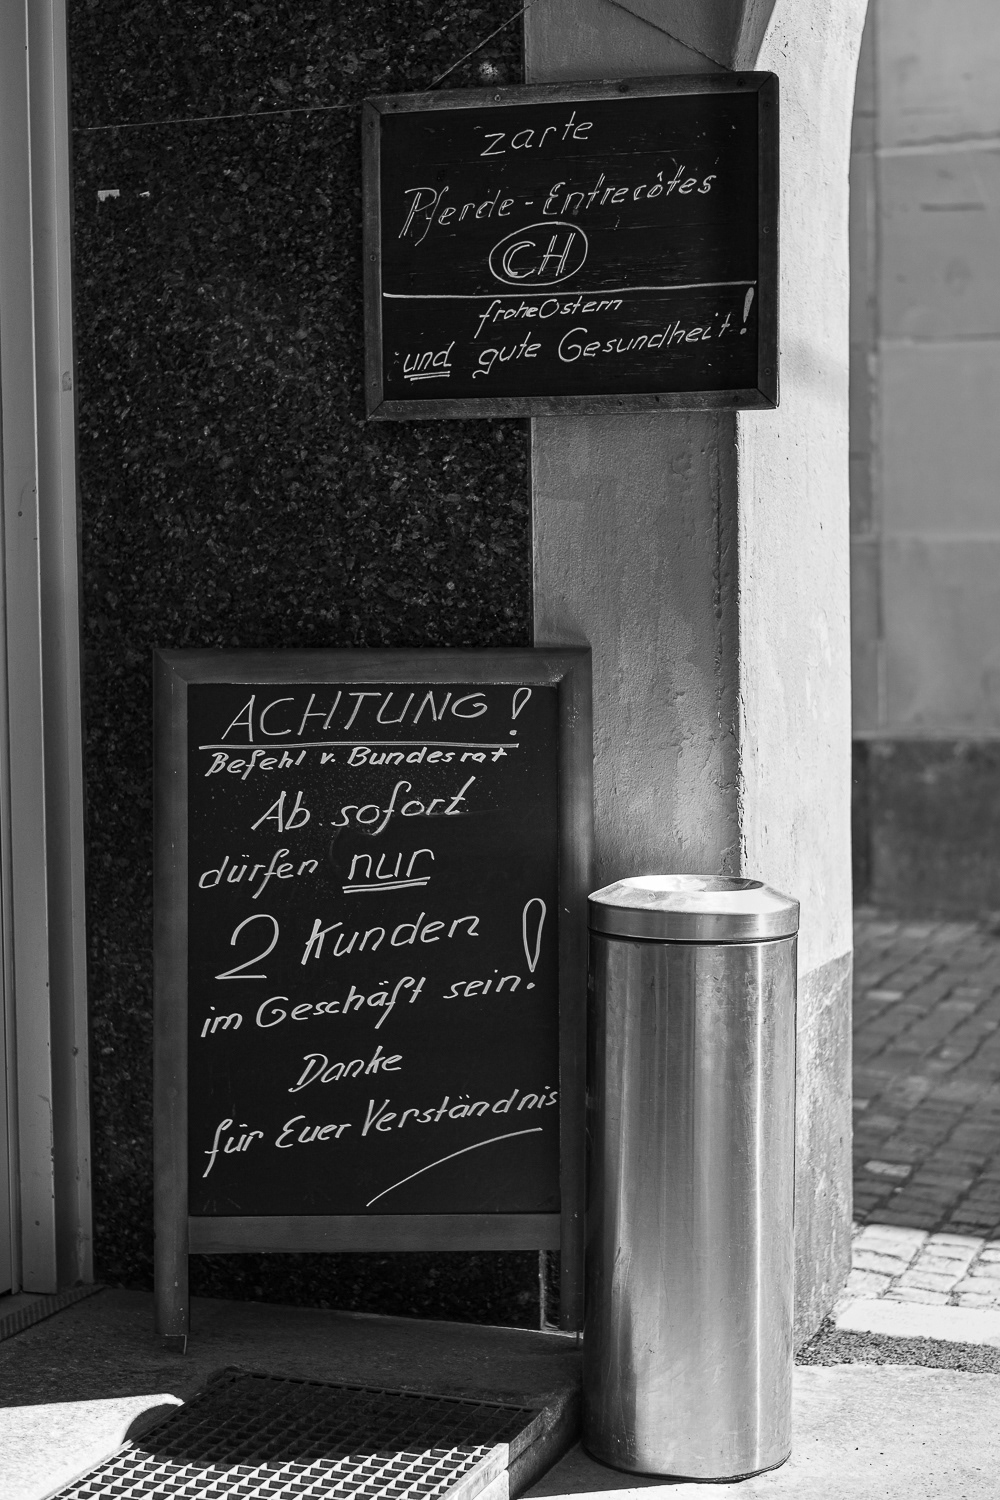 zarte
Pferde-Entrecôtes
CH
frohe Ostern
und gute Gesundheit!
ACHTUNG!
Befehl v. Bundesrat
Ab sofort
dürfen nur
2 Kunden
im Geschäft sein!
Danke
für Euer Verständnis